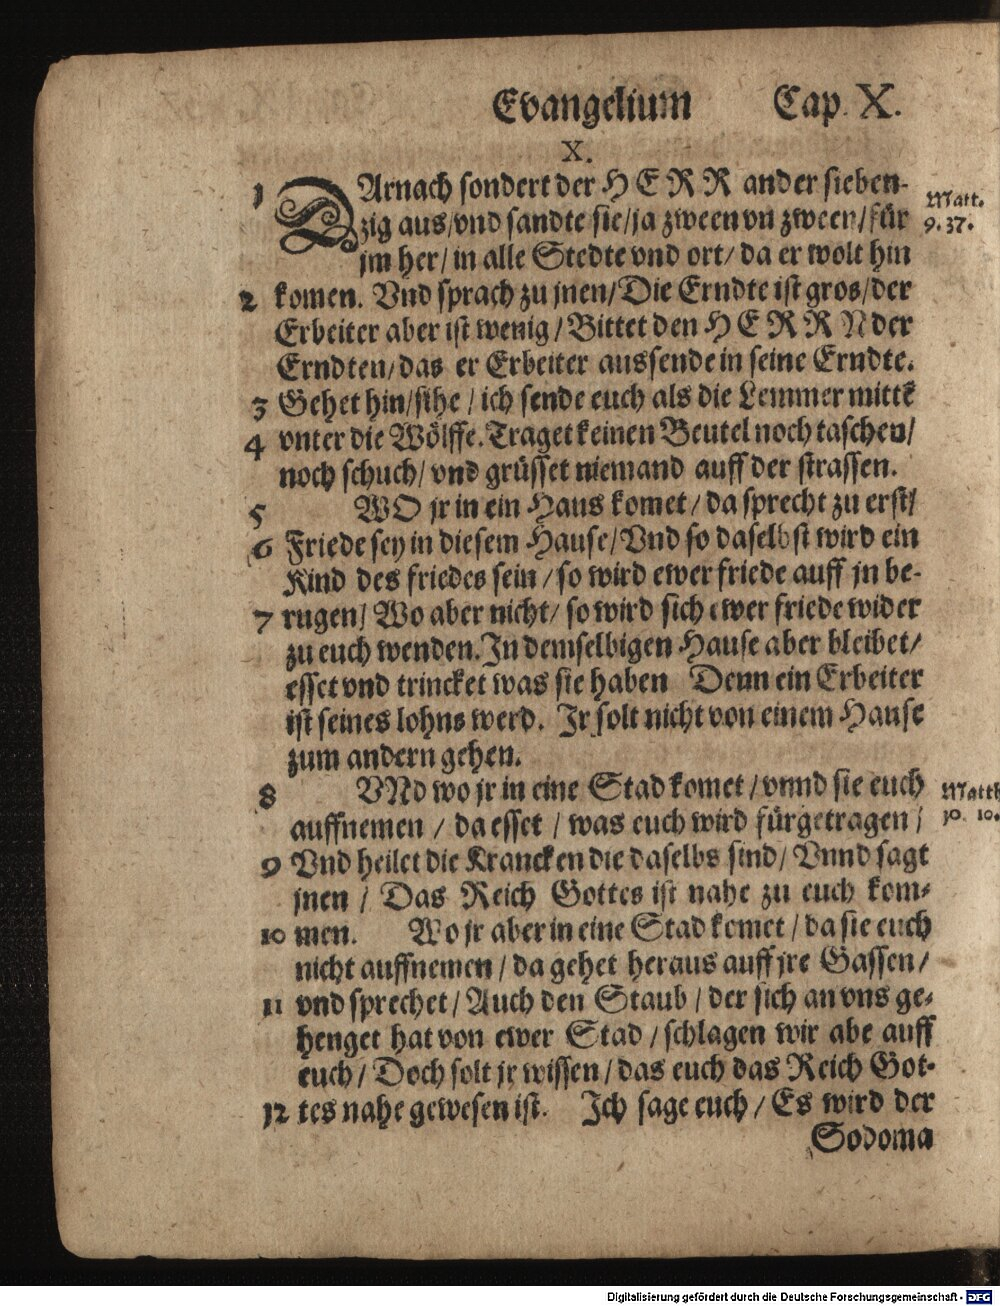 Evangelium Cap. X.
X.
1 DArnach sondert der HERR ander sieben-
zig aus/vnd sandte sie/ja zween vn zween/für
jm her/in alle Stedte vnd ort/da er wolt hin
Matt.
9. 37.
2 komen. Vnd sprach zu jnen/Die Erndte ist gros/der
Erbeiter aber ist wenig/Bittet den HERRN der
Erndten/das er Erbeiter aussende in seine Erndte.
3 Gehet hin/sihe/ich sende euch als die Lemmer mittē
4 vnter die Wölffe. Traget keinen Beutel noch taschen/
noch schuch/vnd grüsset niemand auff der strassen.
5 WO jr in ein Haus komet/da sprecht zu erst/
6 Friede sey in diesem Hause/Vnd so daselbst wird ein
Kind des friedes sein/so wird ewer friede auff jn be-
7 rugen/Wo aber nicht/so wird sich ewer friede wider
zu euch wenden. In demselbigen Hause aber bleibet/
esset vnd trincket was sie haben Denn ein Erbeiter
ist seines lohns werd. Ir solt nicht von einem Hause
zum andern gehen.
8 VNd wo jr in eine Stad komet/vnnd sie euch
auffnemen/da esset/was euch wird fürgetragen/
Matth
10. 10.
9 Vnd heilet die Krancken die daselbs sind/Vnnd sagt
jnen/Das Reich Gottes ist nahe zu euch kom-
10 men. Wo jr aber in eine Stad komet/da sie euch
nicht auffnemen/da gehet heraus auff jre Gassen/
11 vnd sprechet/Auch den Staub/der sich an vns ge-
henget hat von ewer Stad/schlagen wir abe auff
euch/Doch solt jr wissen/das euch das Reich Got-
12 tes nahe gewesen ist. Ich sage euch/Es wird der
Sodoma
Digitalisierung gefördert durch die Deutsche Forschungsgemeinschaft - DFG